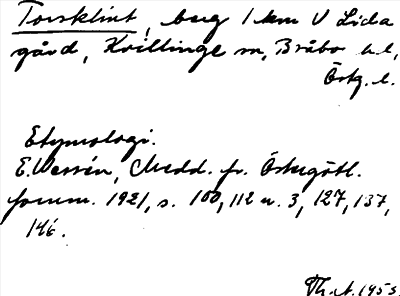 Torsklint, berg 1 km V Lida
gård, Kvillinge sn, Bråbo hd,
Östg. l.
Etymologi.
E. Wessén, Medd. fr. Östergötl.
fornm. 1921, s. 100, 112 n. 3, 127, 137,
146.
Th.A. 1953.